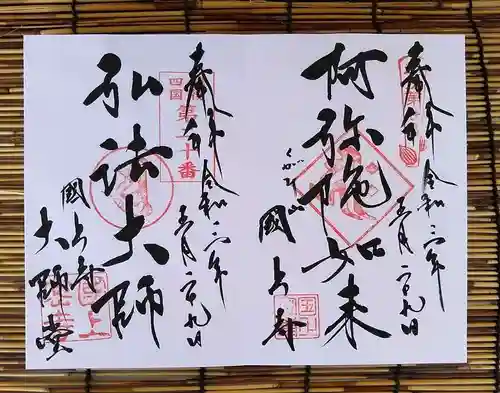 奉拝 令和二年
五月二十九日
阿弥陀如来
くがみでら
國上寺
奉拝 令和二年
五月二十九日
四国
第二十番
弘法大師
國上寺
大師堂